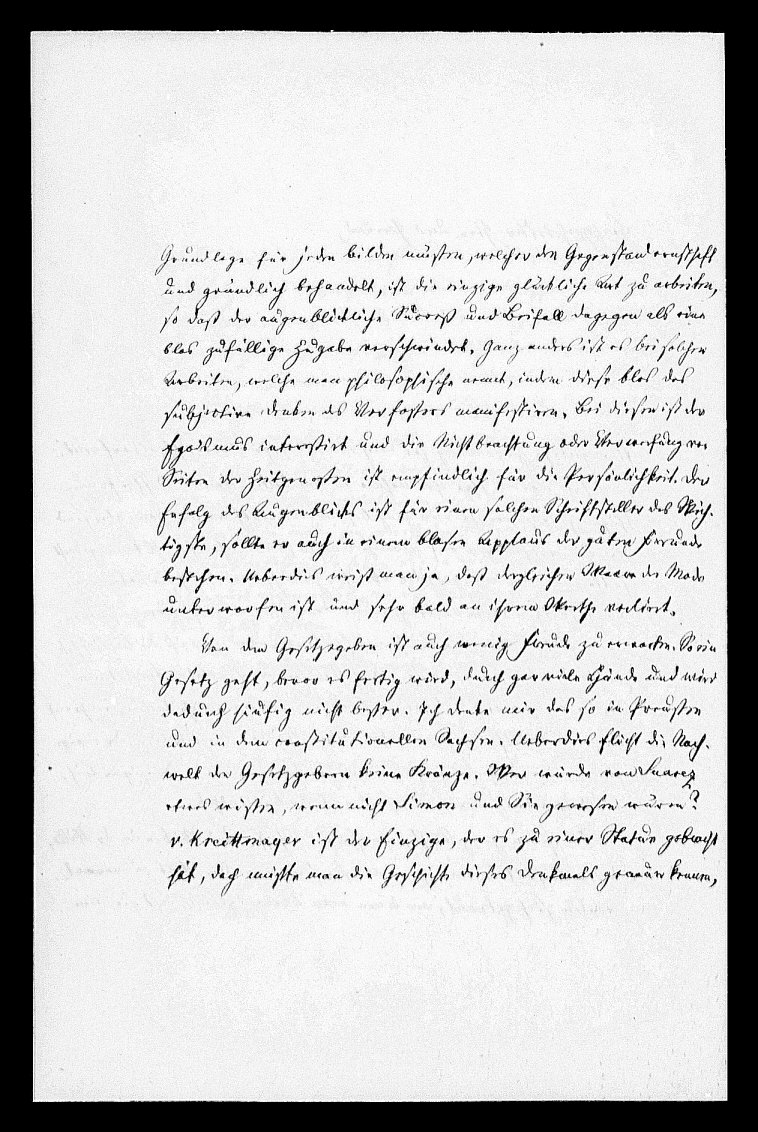 Grundlage für jeden bilden müssen, welcher den Gegenstand ernsthaft
und gründlich behandelt, ist die einzige glückliche Art zu arbeiten,
so daß der augenblickliche Succeß und Beifall dagegen als eine
blos zufällige Zugabe verschwindet. Ganz anders ist es bei solchen
Arbeiten, welche man philosophische nennt, indem diese blos das
subjective Denken des Verfassers manifestiren. Bei diesen ist der
Egoismus interessirt und die Nichtbeachtung oder Verwerfung von
Seiten der Zeitgenossen ist empfindlich für die Persönlichkeit. Der
Erfolg des Augenblicks ist für einen solchen Schriftsteller das Wich-
tigste, sollte er auch in einem blosen Applaus der guten Freunde
bestehen. Ueberdies weist man ja, daß dergleichen Waare der Mode
unterworfen ist und sehr bald an ihrem Werthe verliert.
Von dem Gesetzgeben ist auch wenig Freude zu erwarten. So ein
Gesetz geht, bevor es fertig wird, durch gar viele Hände und wird
dadurch häufig nicht besser. Ich denke mir das so in Preussen
und in dem constitutionellen Sachsen. Ueberdies flicht die Nach-
welt den Gesetzgebern keine Kränze. Wer würde von Suarez
etwas wissen, wenn nicht Simon und Sie gewesen wären?
v. Kreittmayer ist der Einzige, der es zu einer Statue gebracht
hat, doch müßte man die Geschichte dieses Denkmals genauer kennen,